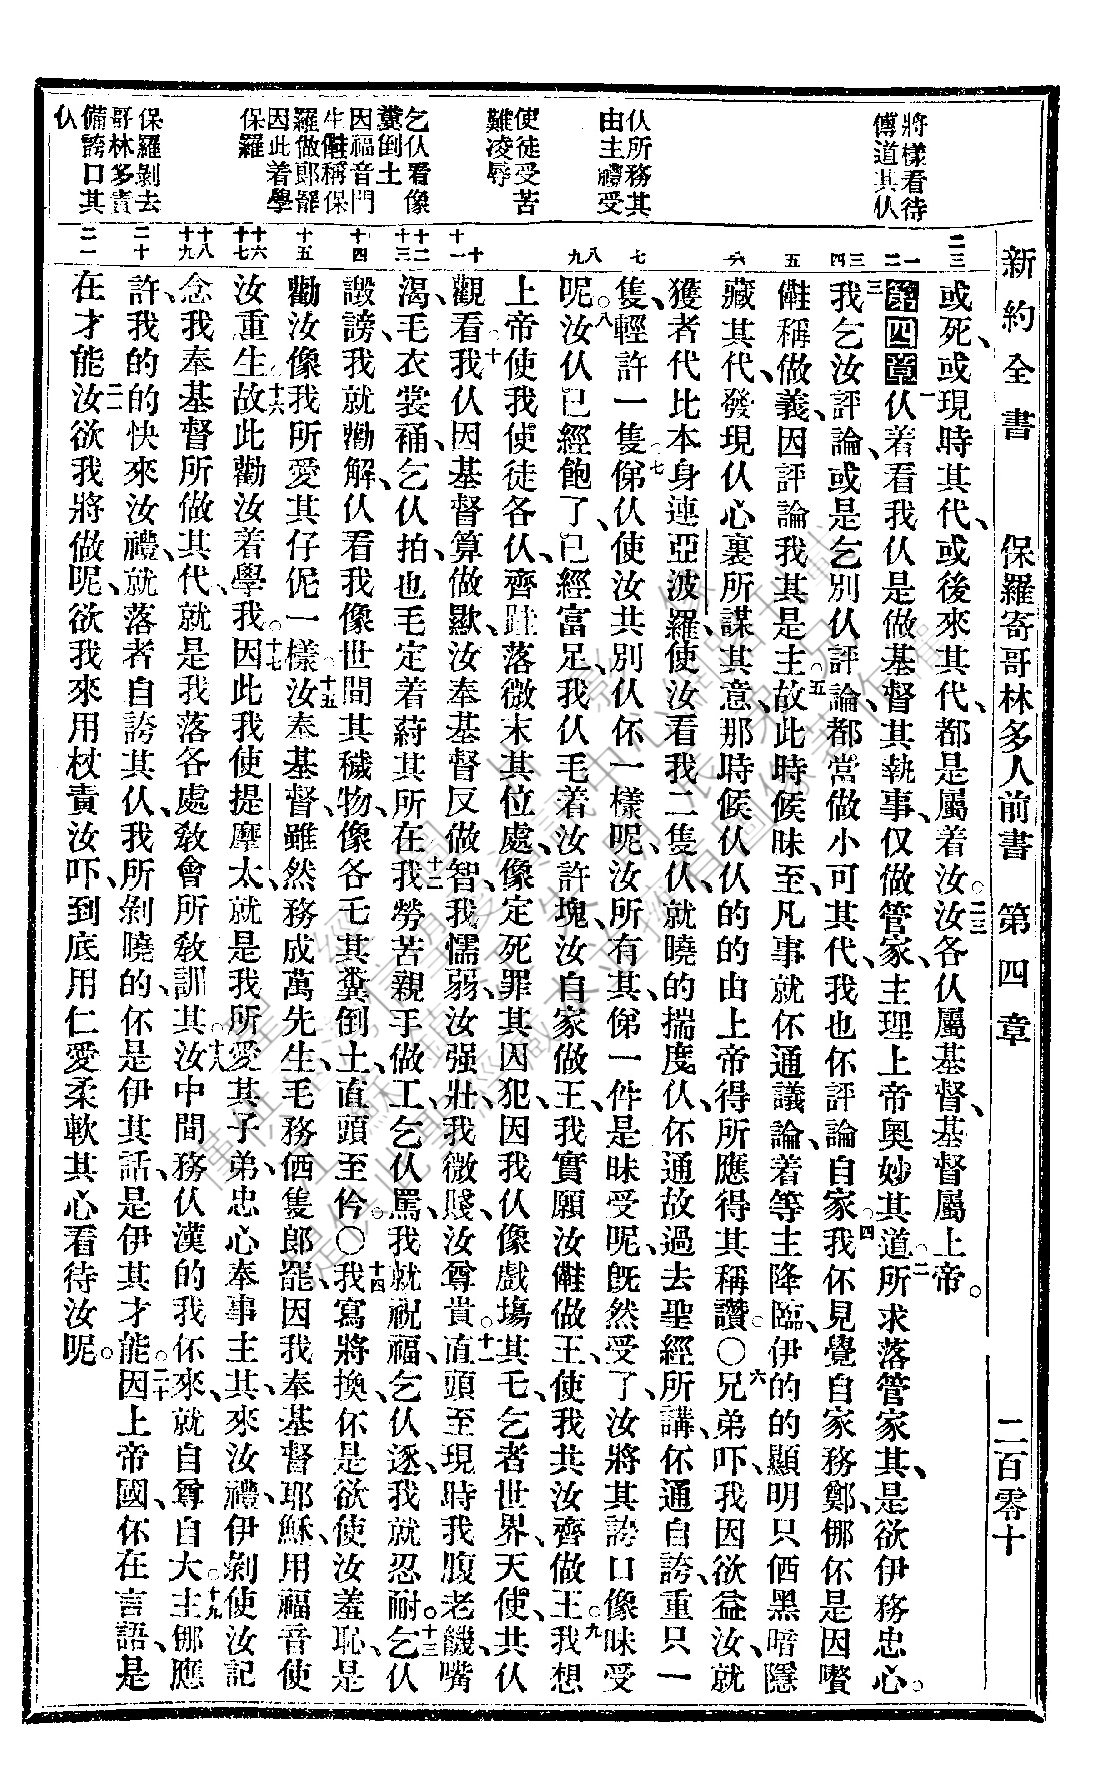 新約全書　保羅寄哥林多人前書　第四章　二百零十
將樣看待
傳道其仈
仈所務其
由主禮受
使徒受苦
難凌辱
乞仈看像
糞倒土
因福音門
生𣍐稱保
羅做郎罷
因此着學
保羅
保羅剝去
哥林多責
備誇口其
仈
或死、或現時其代、或後來其代、都是屬着汝。二三汝各仈屬基督、基督屬上帝。
第四章一仈着看我仈是做基督其執事、仅做管家、主理上帝奧妙其道。二所求落管家其、是欲伊務忠心。
三我乞汝評論、或是乞別仈評論、都當做小可其代、我也伓評論自家。四我伓見覺自家務鄭、㑚伓是因嚽
𣍐稱做義、因評論我其是主。五故此時候昧至、凡事就伓通議論、着等主降臨、伊的的顯明只㑄黑暗隱
藏其代、發現仈心裏所謀其意、那時候仈仈的的由上帝得所應得其稱讚。〇六兄弟吓、我因欲益汝、就
獲者代比本身連亞波羅、使汝看我二隻仈、就曉的揣度仈伓通故過去聖經所講、伓通自誇、重只一
隻、輕許一隻。七俤仈使汝共別仈伓一樣呢、汝所有其、俤一件是昧受呢、旣然受了、汝將其誇口像昧受
呢。八汝仈已經飽了、已經富足、我仈毛着汝許塊、汝自家做王、我實願汝𣍐做王、使我共汝齊做王。九我想
上帝使我使徒各仈、齊跬落微末其位處、像定死罪其因犯、因我仈像戲塲其乇、乞者世界、天使、共仈
觀看。十我仈因基督算做獃、汝奉基督反做智、我懦弱、汝强壯、我微賤、汝尊貴。十一直頭至現時我腹老饑、嘴
渴、毛衣裳𧙕、乞仈拍、也毛定着蒔其所在、十二我勞苦親手做工、乞仈罵、我就祝福、乞仈逐、我就忍耐。十三乞仈
譭謗、我就勸解、仈看我像世間其穢物、像各乇其糞倒土、直頭至仱。〇十四我寫將換、伓是欲使汝羞恥、是
勸汝像我所愛其仔伲一樣。十五汝奉基督、雖然務成萬先生、毛務㑄隻郎罷、因我奉基督耶穌、用福音使
汝重生。十六故此勸汝着學我。十七因此我使提摩太、就是我所愛其子弟、忠心奉事主其、來汝禮、伊剝使汝記
念我奉基督所做其代、就是我落各處敎會所敎訓其。十八汝中間務仈漢的我伓來、就自尊自大。十九主㑚應
許、我的的快來汝禮、就落者自誇其仈、我所剝曉的、伓是伊其話、是伊其才能。二十因上帝國、伓在言語、是
在才能。二一汝欲我將做呢、欲我來用杖責汝吓、到底用仁愛柔軟其心看待汝呢。